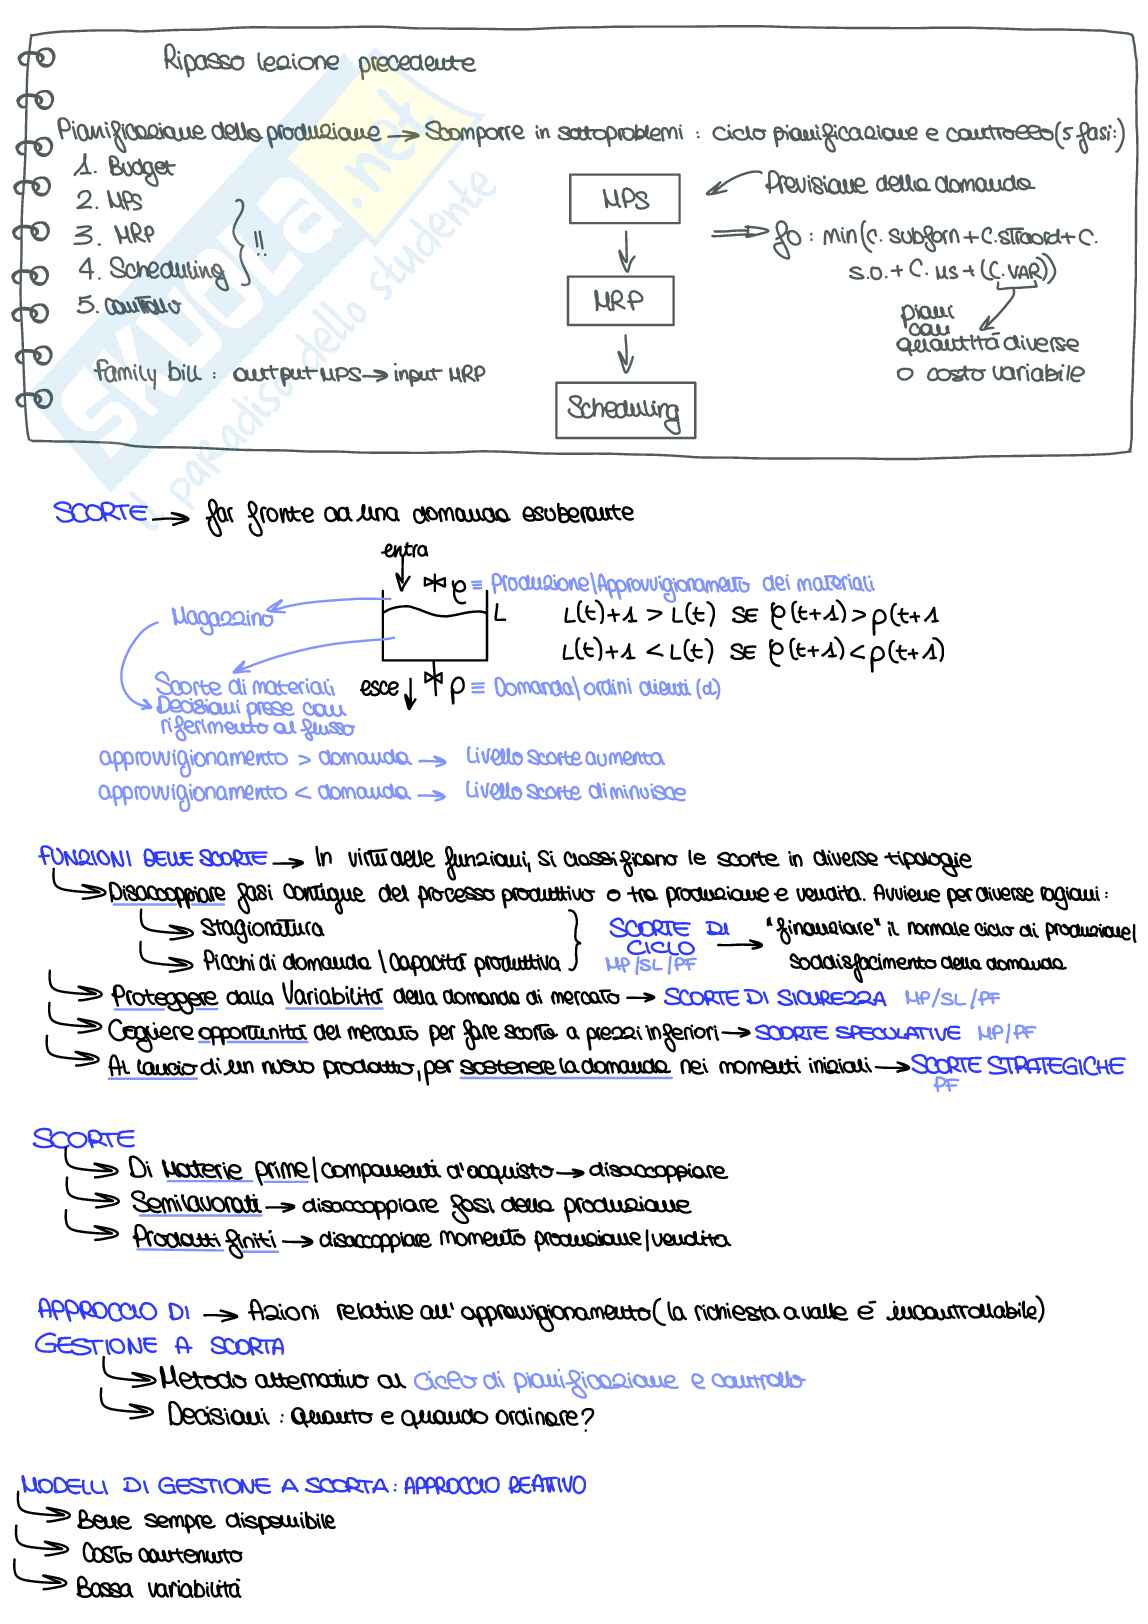 Ripasso lezione precedente
Pianificazione della produzione → Scomporre in sottoproblemi : ciclo pianificazione e controllo (5 fasi:)
1. Budget
2. MPS
3. MRP
4. Scheduling
5. controllo
!!
family bill : output MPS → input MRP
MPS
MRP
Scheduling
Previsione della domanda
⇒ fo : min(C. subforn + C. straord + C.
s.o. + C. ms + (C. VAR))
piani
con
quantità diverse
o costo variabile
SKUOLA.net
il paradiso dello studente
SCORTE → far fronte ad una domanda esuberante
entra
ρ ≡ Produzione/Approvvigionamento dei materiali
Magazzino
L
L(t)+1 > L(t) SE ρ(t+1) > ρ(t+1
L(t)+1 < L(t) SE ρ(t+1) < ρ(t+1)
Scorte di materiali
esce
ρ ≡ Domanda/ordini clienti (d)
Decisioni prese con
riferimento al flusso
approvvigionamento > domanda → Livello scorte aumenta
approvvigionamento < domanda → Livello scorte diminuisce
FUNZIONI DELLE SCORTE → In virtù delle funzioni, si classificano le scorte in diverse tipologie
Disaccoppiare fasi contigue del processo produttivo o tra produzione e vendita. Avviene per diverse ragioni :
Stagionatura
Picchi di domanda / Capacità produttiva
SCORTE DI
CICLO
MP/SL/PF
→ "finanziare" il normale ciclo di produzione/
soddisfacimento della domanda
Proteggere dalla Variabilità della domanda di mercato → SCORTE DI SICUREZZA MP/SL/PF
Cogliere opportunità del mercato per fare scorta a prezzi inferiori → SCORTE SPECULATIVE MP/PF
Al lancio di un nuovo prodotto, per sostenere la domanda nei momenti iniziali → SCORTE STRATEGICHE
PF
SCORTE
Di Materie prime/componenti d'acquisto → disaccoppiare
Semilavorati → disaccoppiare fasi della produzione
Prodotti finiti → disaccoppiare momento produzione/vendita
APPROCCIO DI → Azioni relative all'approvvigionamento (la richiesta a valle è incontrollabile)
GESTIONE A SCORTA
Metodo alternativo al ciclo di pianificazione e controllo
Decisioni : quanto e quando ordinare?
MODELLI DI GESTIONE A SCORTA: APPROCCIO REATTIVO
Bene sempre disponibile
Costo contenuto
Bassa variabilità